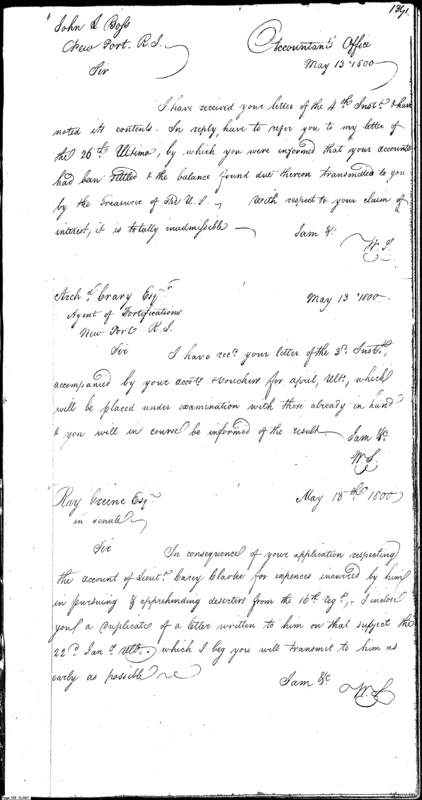 139.
John L Boss
New Port. R.S.
Accountant's Office
May 13th 1800
Sir
I have received your letter of the 4th Inst. & have
noted its contents. In reply, have to refer you to my letter of
the 26th Ultimo, by which you were informed that your accounts
had been settled & the balance found due thereon transmitted to you
by the Treasurer of the U.S. With respect to your claim of
interest, it is totally inadmissible
I am &c
W.S.
Archd. Crary Esqr
May 13th 1800.
Agent of Fortifications
New Port R.I.
Sir I have recd. your letter of the 3d. Inst.,
accompanied by your accots. & vouchers for april, Ulto., which
will be placed under examination with those already in hand
& you will in course be informed of the result
I am &c.
W.S.
Ray Greene Esqr
May 13th 1800
in Senate
Sir In consequence of your application respecting
the account of Lieut. Carey Clarke for expences incurred by him
in pursuing & apprehending deserters from the 16th Regt., I inclose
you a duplicate of a letter written to him on that subject the
22d. Jany. Ulto. which I beg you will transmit to him as
early as possible
I am &c
W.S.